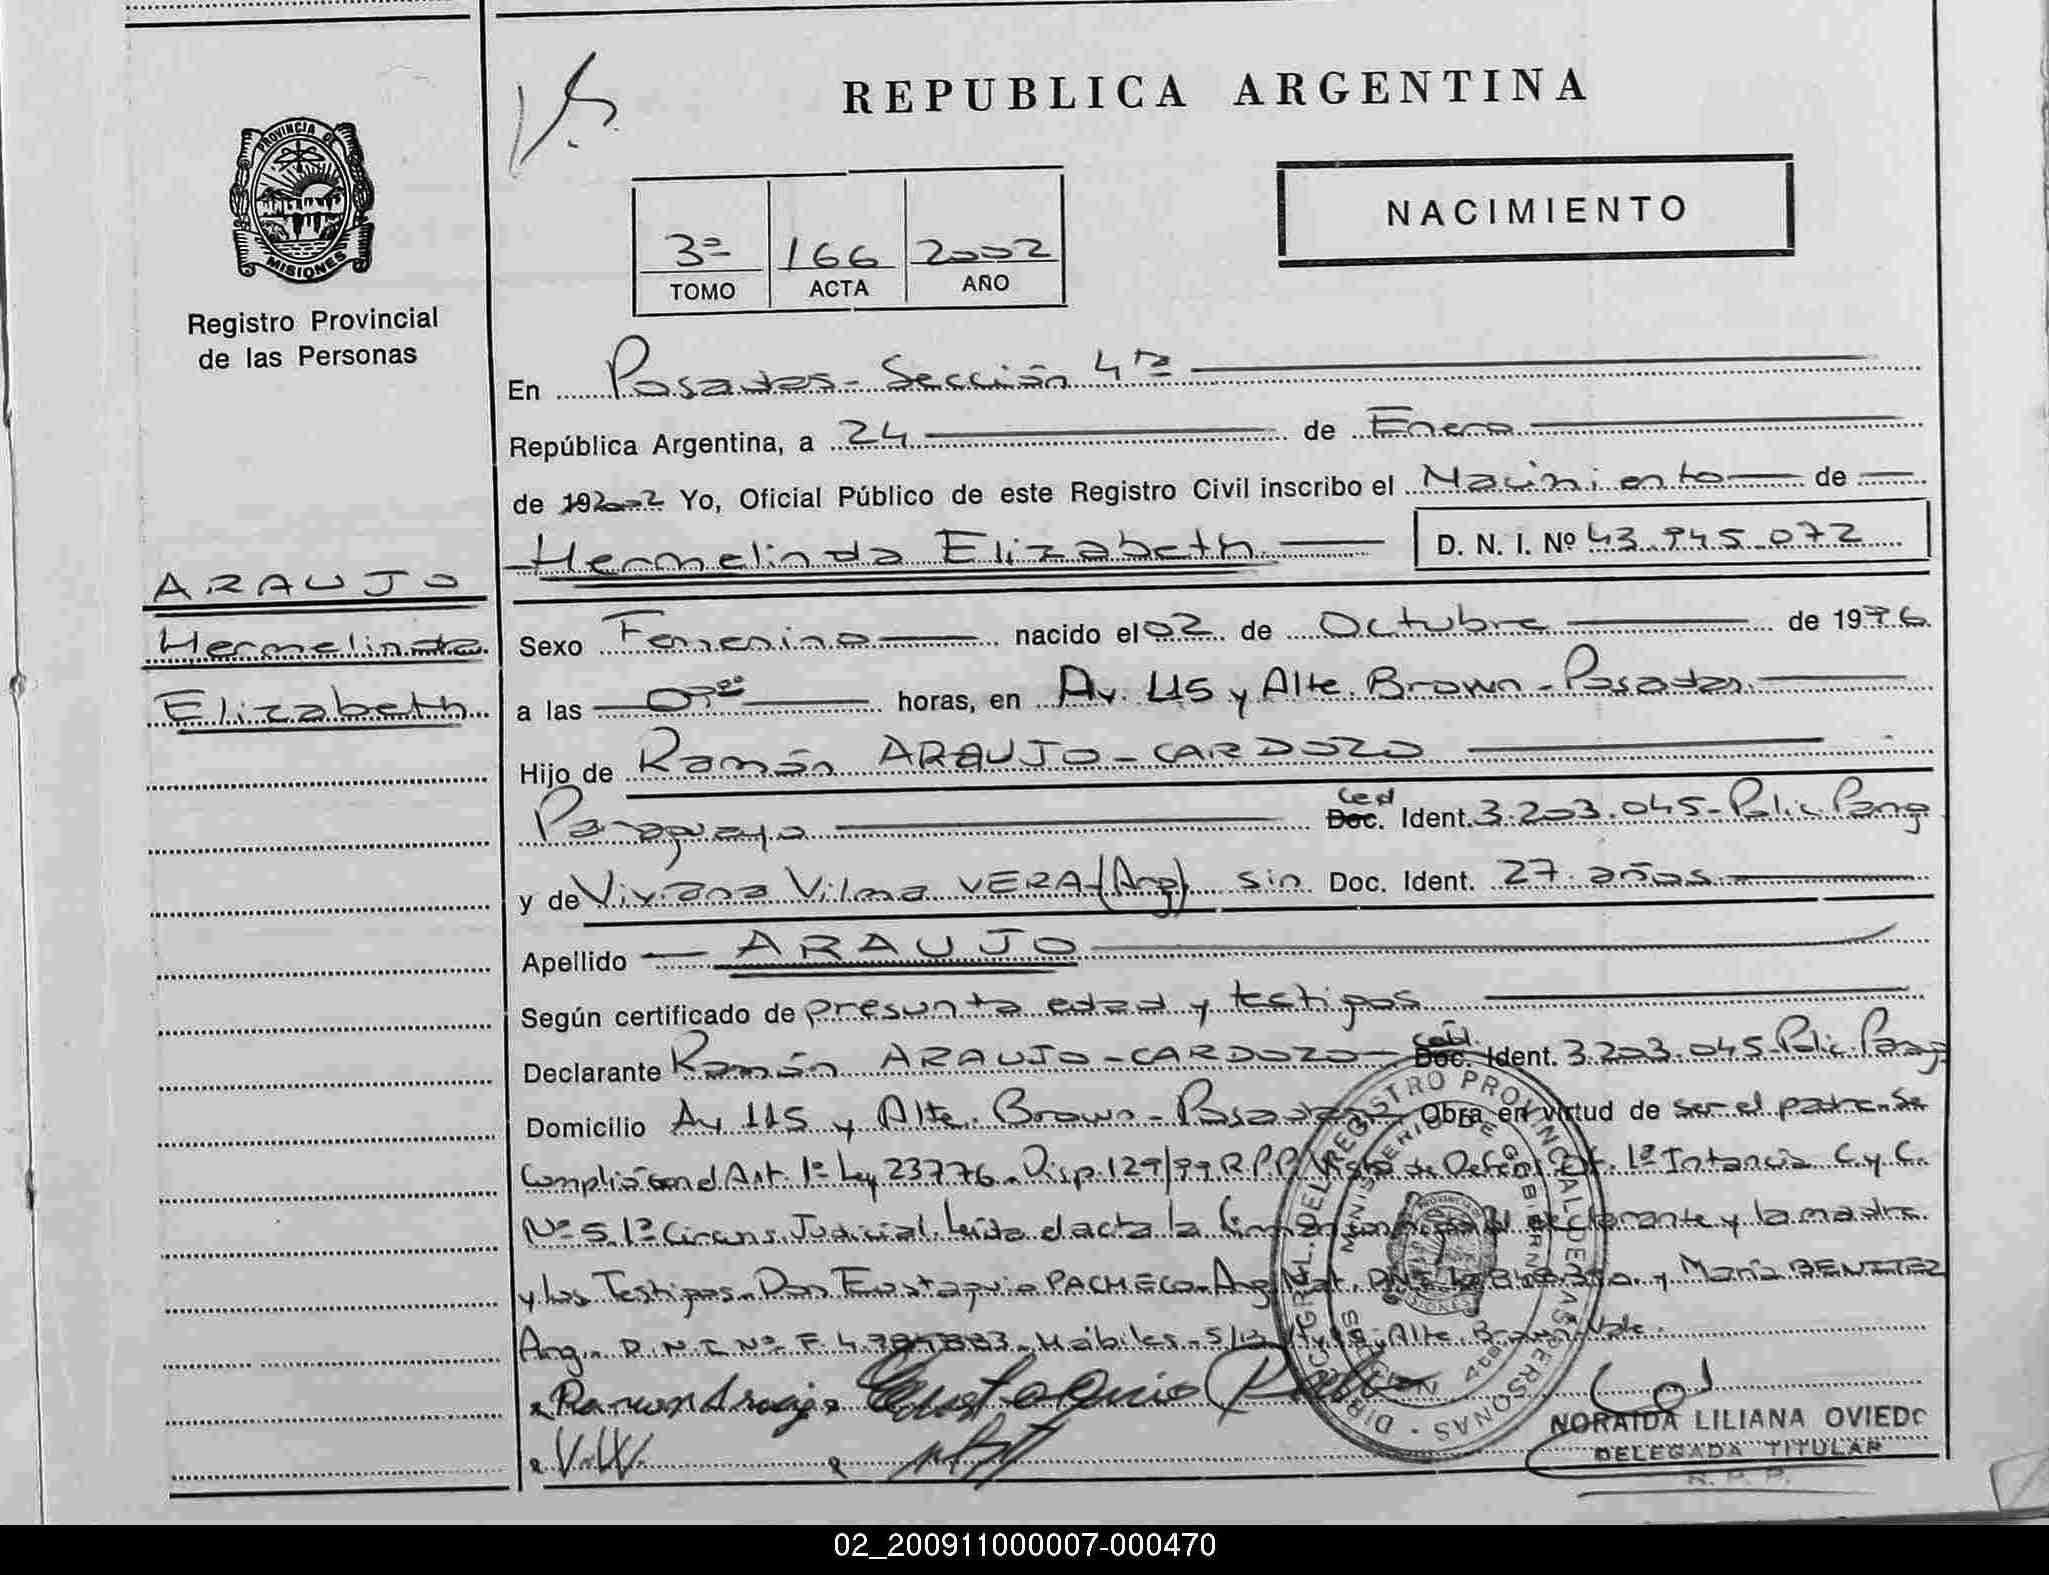 REPUBLICA ARGENTINA
PROVINCIA DE
MISIONES
Registro Provincial
de las Personas
NACIMIENTO
3º 166 2002
TOMO ACTA AÑO
En Posadas - Sección 4ta
República Argentina, a 24 de Enero
de 192002 Yo, Oficial Público de este Registro Civil inscribo el Nacimiento de
Hermelinda Elizabeth D. N. I. Nº 43.945.072
ARAUJO
Hermelinda
Elizabeth
Sexo Femenino nacido el 02 de Octubre de 1976
a las horas, en Av. 115 y Alte. Brown - Posadas
Hijo de Ramón ARAUJO - CARDOZO
Paraguayo Ced Doc. Ident. 3.203.045 - Polic. Parag
y de Viviana Vilma VERA (Arg) sin Doc. Ident. 27 años
Apellido ARAUJO
Según certificado de presunta edad y testigos
Declarante Ramón ARAUJO - CARDOZO Ced. Doc. Ident. 3.203.045 - Polic. Parag
Domicilio Av 115 y Alte. Brown - Posadas Obra en virtud de ser el padre. Se
Cumplió con el Art. 1º Ley 23776. Disp. 129/99 R.P.P. Vista de Defens. Of. 1º Intancia C. y C.
Nº 5. 1º Circuns. Judicial. Leída el acta la declarante y la madre
y los Testigos. Don Eustaquio PACHECO - Arg. Nat. DNI y María BENITEZ
Arg. D.N.I. Nº F. 4. Hábiles - Alte. Brown. Vale.
Ramon Araujo Eustaquio
V.W.
DIRECC. GRAL. DEL REGISTRO PROVINCIAL DE LAS PERSONAS
MINISTERIO DE GOBIERNO
MISIONES
NORAIDA LILIANA OVIEDO
DELEGADA TITULAR
R. P. P.
02_200911000007-000470